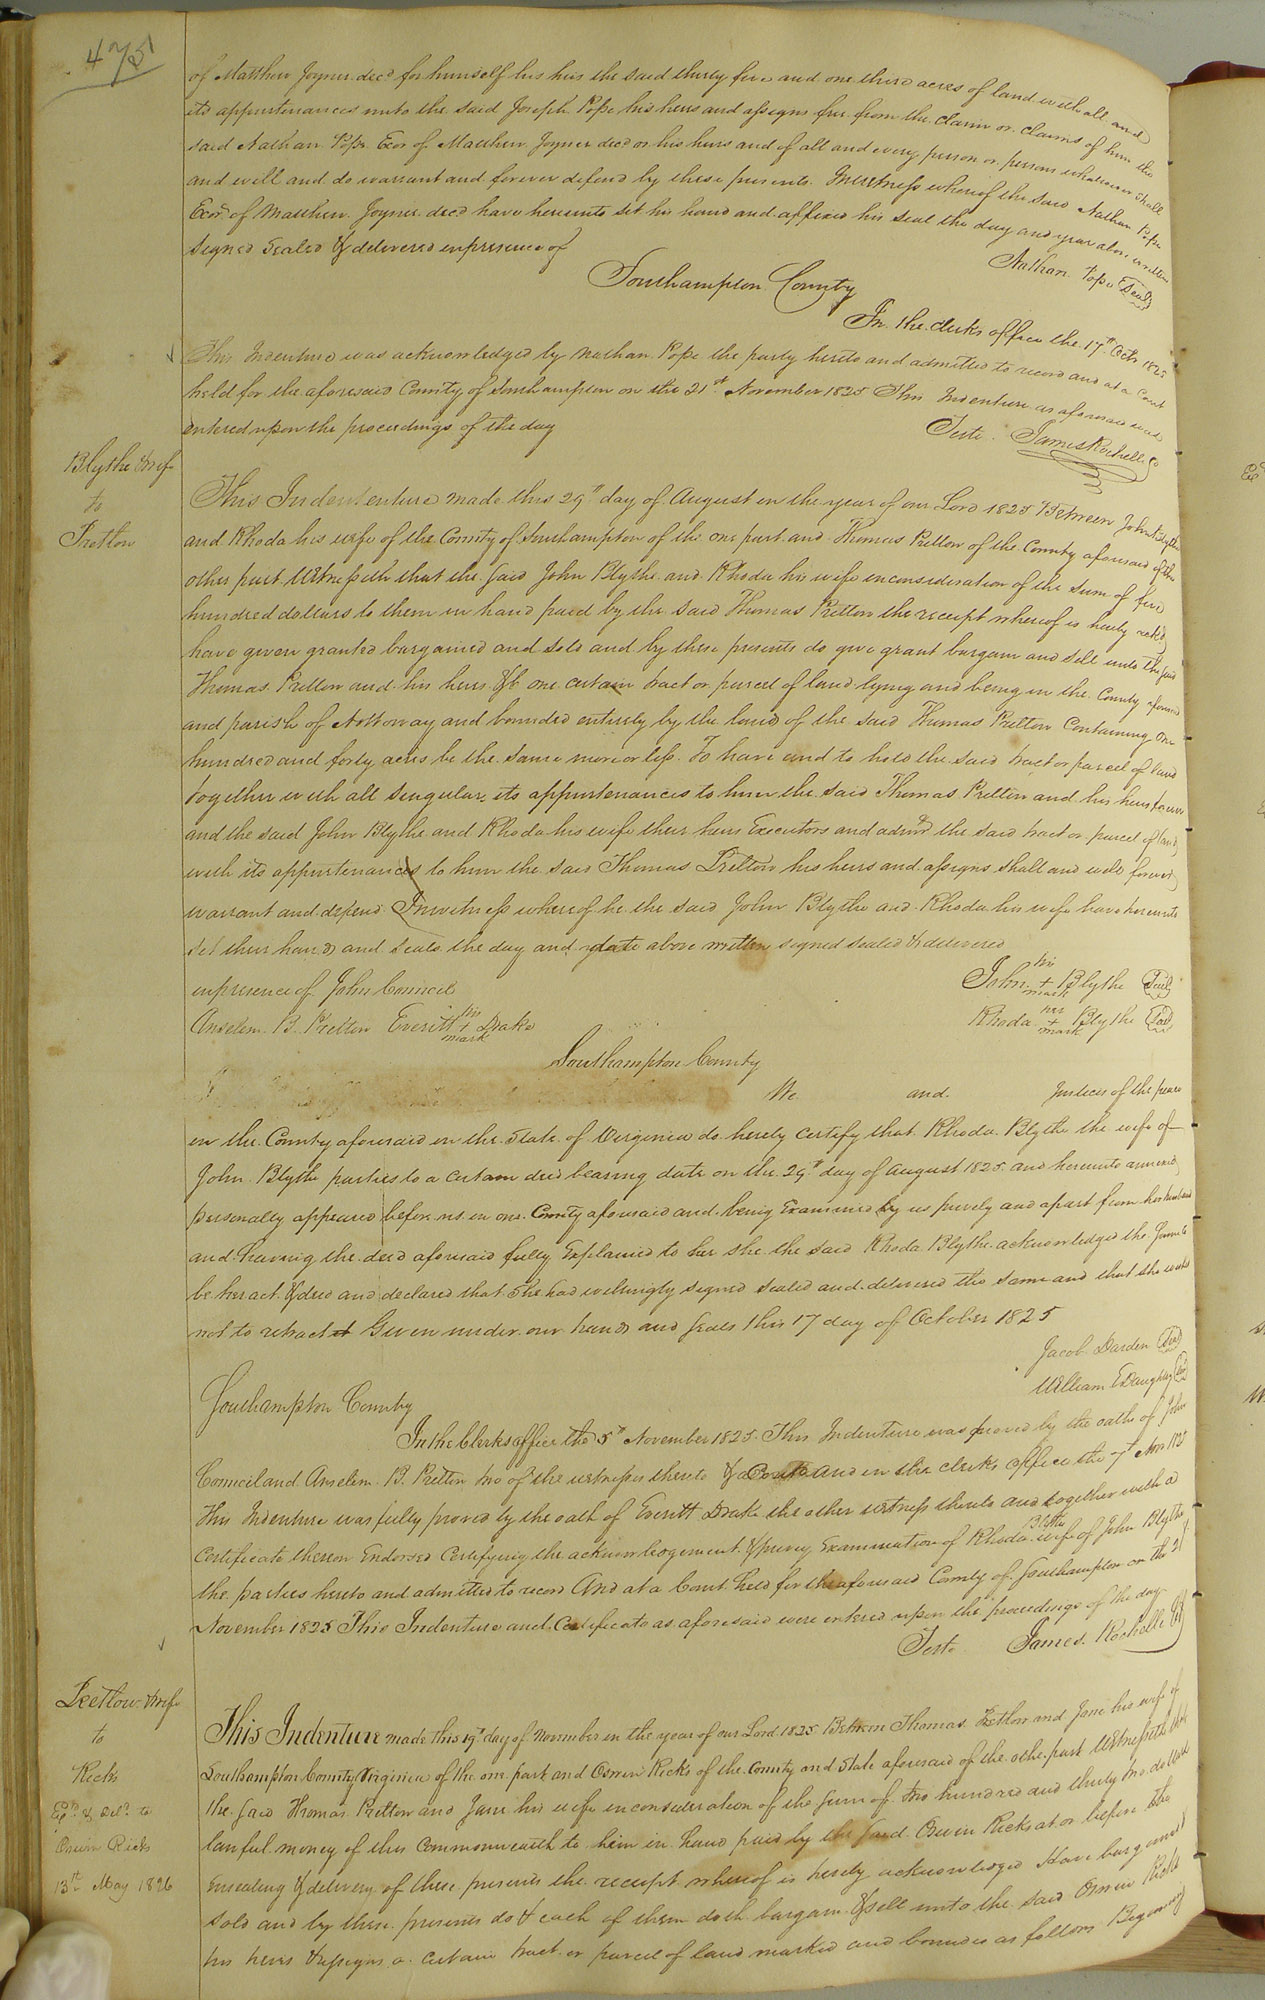 475
of Matthew Joyner decd for himself his heirs the said thirty five and one third acres of land with all and
its appurtenances unto the said Joseph Pope his heirs and assigns free from the claim or claims of him the
said Nathan Pope Exor of Matthew Joyner decd or his heirs and of all and every person or persons whatsoever shall
and will and do warrant and forever defend by these presents. In witness whereof the said Nathan Pope
Exor of Matthew Joyner decd have hereunto set his hand and affixed his seal the day and year above written
Signed Sealed & delivered in presence of
Nathan Pope Seal
Southampton County
In the clerks office the 17th Octo 1825
This Indenture was acknowledged by Nathan Pope the party hereto and admitted to record and at a Court
held for the aforesaid County of Southampton on the 21st November 1825 This Indenture as aforesaid was
entered upon the proceedings of the day
Teste James Rochelle C
Blythe & wife
to
Pretlow
This Indententure made this 29th day of August in the year of our Lord 1825 Between John Blythe
and Rhoda his wife of the County of Southampton of the one part and Thomas Pretlow of the County aforesaid of the
other part Witnesseth that the said John Blythe and Rhoda his wife in consideration of the sum of five
hundred dollars to them in hand paid by the said Thomas Pretlow the receipt whereof is hereby ackd
have given granted bargained and sold and by these presents do give grant bargain and sell unto the said
Thomas Pretlow and his heirs &c one certain tract or parcel of land lying and being in the County aforesaid
and parish of Nottoway and bounded entirely by the land of the said Thomas Pretlow Containing One
hundred and forty acres be the same more or less. To have and to hold the said tract or parcel of land
together with all singular its appurtenances to him the said Thomas Pretlow and his heirs forever
and the said John Blythe and Rhoda his wife their heirs Executors and admrs the said tract or parcel of land
with its appurtenances to him the said Thomas Pretlow his heirs and assigns shall and will forever
warrant and defend In witness whereof he the said John Blythe and Rhoda his wife have hereunto
set their hands and seals the day and date above written signed sealed & delivered
in presence of John Council
John his + mark Blythe Seal
Anselm B. Pretlow Everitt his + mark Drake
Rhoda her + mark Blythe Seal
Southampton County
We and Justices of the peace
in the County aforesaid in the State of Virginia do hereby certify that Rhoda Blythe the wife of
John Blythe parties to a certain deed bearing date on the 29th day of August 1825 and hereunto annexed
personally appeared before us in our County aforesaid and being Examined by us privily and apart from her husband
and having the deed aforesaid fully Explained to her she the said Rhoda Blythe acknowledged the same to
be her act & deed and declared that she had willingly signed sealed and delivered the same and that she wished
not to retract it Given under our hands and seals this 17 day of October 1825
Jacob Darden Seal
William E Daughtry Seal
Southampton County
In the Clerks office the 5th November 1825. This Indenture was proved by the oaths of John
Council and Anselm B. Pretlow two of the witnesses thereto & a Court and in the clerks office the 7th Nov 1825
This Indenture was fully proved by the oath of Everitt Drake the other witness thereto and together with a
Certificate thereon Endorsed Certifying the acknowledgement & privy Examination of Rhoda Blythe wife of John Blythe
the parties hereto and admitted to record And at a Court held for the aforesaid County of Southampton on the 21
November 1825 This Indenture and Certificate as aforesaid were entered upon the proceedings of the day
Teste James Rochelle
Pretlow & wife
to
Ricks
Exd. & Deld. to
Oswin Ricks
13th May 1826
This Indenture made this 19th day of November in the year of our Lord 1825 Between Thomas Pretlow and Jane his wife of
Southampton County Virginia of the one part and Oswin Ricks of the County and State aforesaid of the other part Witnesseth that
the said Thomas Pretlow and Jane his wife in consideration of the sum of two hundred and thirty two dollars
lawful money of this Commonwealth to him in hand paid by the said Oswin Ricks at or before the
Ensealing & delivery of these presents the receipt whereof is hereby acknowledged Have bargained
sold and by these presents do & each of them doth bargain & sell unto the said Oswin Ricks
his heirs & assigns a certain tract or parcel of land marked and bounded as follows Beginning